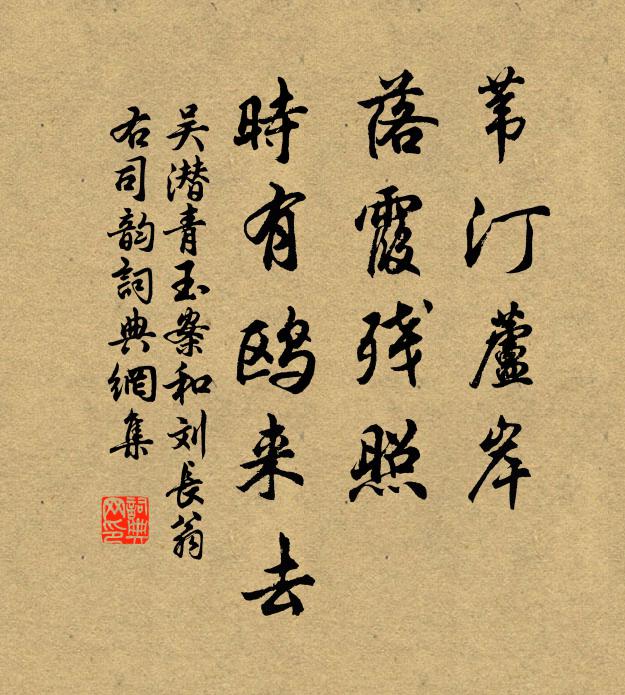 苇汀蘆岸
落霞残照
時有鸥来去
吴潜青玉案和刘长翁
右司韵詞典網集
詞典网印